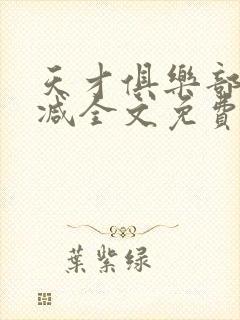 天才俱樂部
减全文免費
葉紫绿